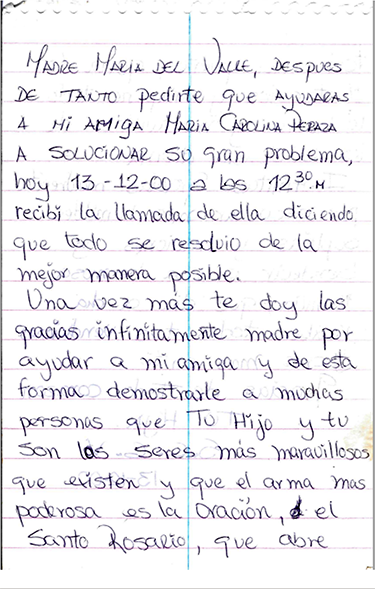 MADRE MARIA DEL VALLE, DESPUES
DE TANTO pedirte que AYUDARAS
A MI AMIGA MARIA CAROLINA PERAZA
A SOLUCIONAR SU gran problema,
hoy 13-12-00 a las 12 30 M
recibí la llamada de ella diciendo
que todo se resolvio de la
mejor manera posible.
Una vez más te doy las
gracias infinitamente madre por
ayudar a mi amiga y de esta
forma demostrarle a muchas
personas que Tu Hijo y tu
Son los seres más maravillosos
que existen y que el arma mas
poderosa es la Oración, el
Santo Rosario, que abre